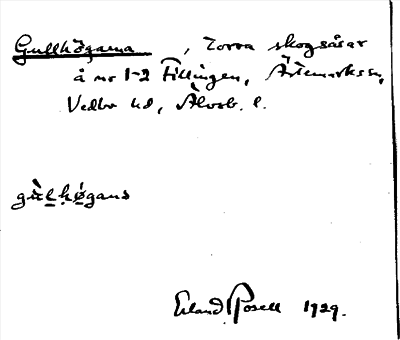 Gullhögarna, torra skogsåsar
å nr 1-2 Fillingen, Ärtemarks sn,
Vedbo hd, Älvsb. l.
gù̀l̥hǿgans
Erland Rosell 1929.